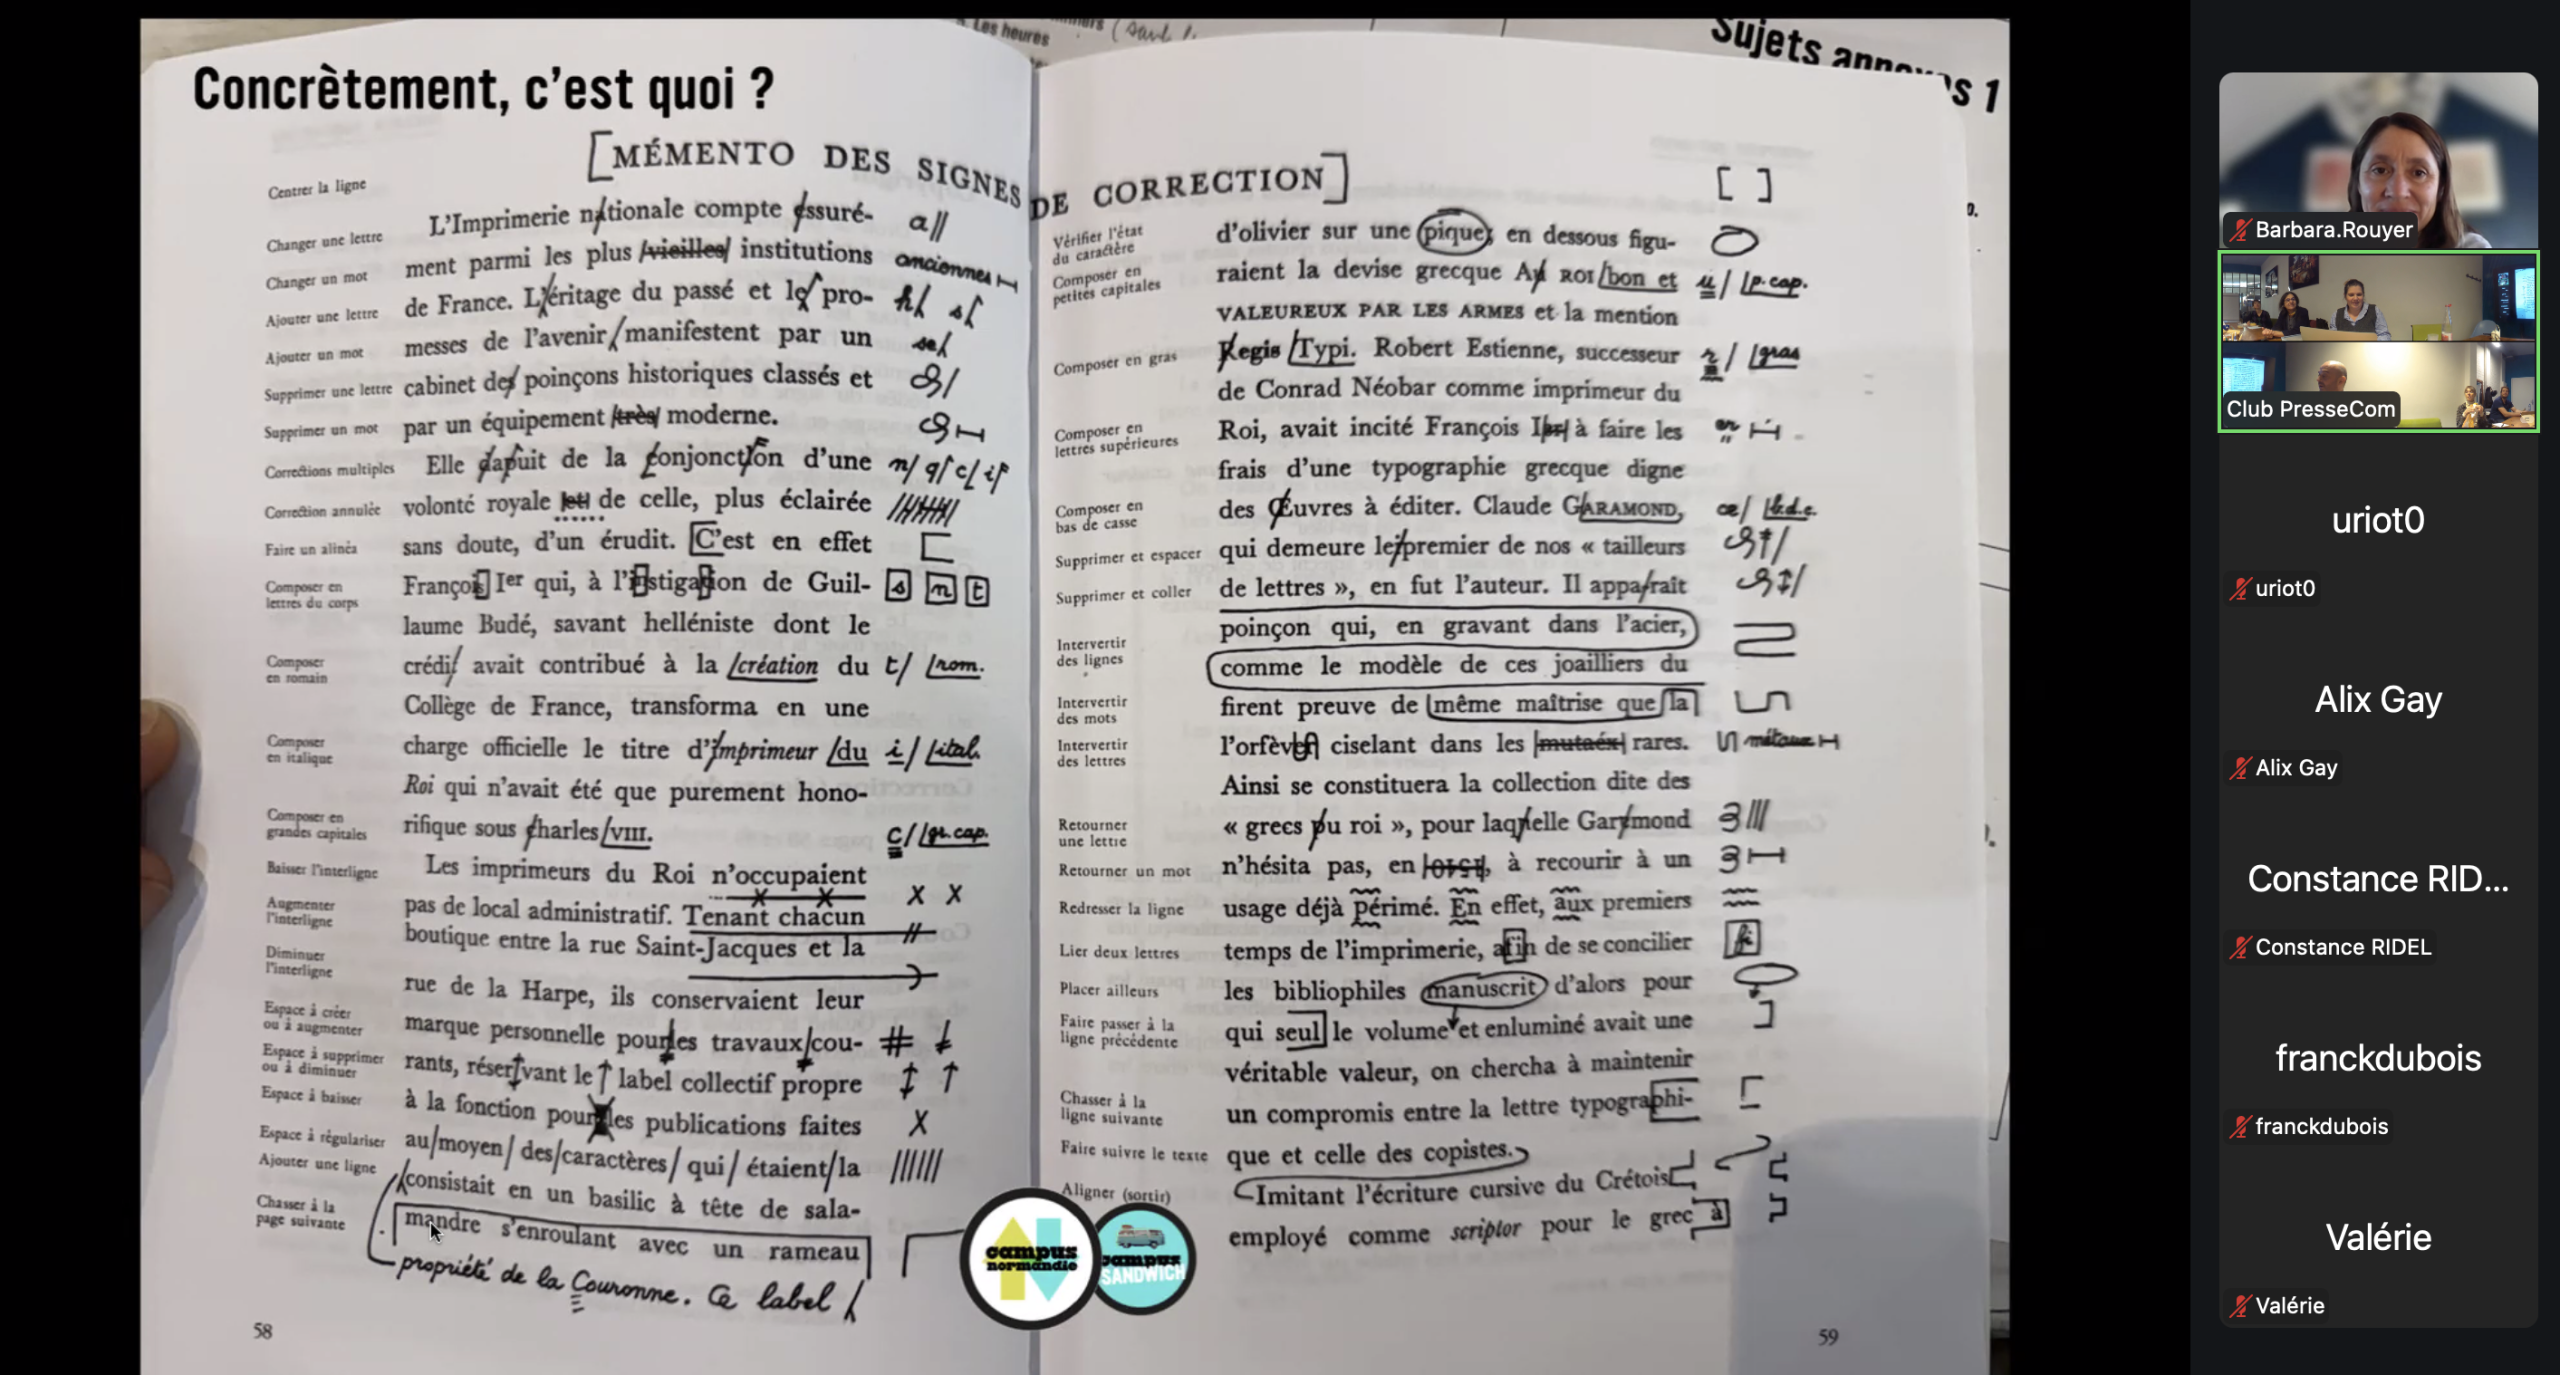 Les heures
Sujets annexes 1
Concrètement, c'est quoi ?
[MÉMENTO DES SIGNES DE CORRECTION]
Centrer la ligne
L'Imprimerie nationale compte essuré-
Changer une lettre
a//
ment parmi les plus vieilles institutions
Changer un mot
anciennes
de France. L'éritage du passé et le pro-
Ajouter une lettre
h/ s/
messes de l'avenir/manifestent par un
Ajouter un mot
se/
Supprimer une lettre
cabinet des poinçons historiques classés et
Supprimer un mot
par un équipement très moderne.
Corrections multiples
d'une
n/ q/ c/ i/
Correction annulée
volonté royale et de celle, plus éclairée
Faire un alinéa
sans doute, d'un érudit. [C'est en effet
Composer en
lettres du corps
François Ier qui, à l'instigation de Guil-
s n t
laume Budé, savant helléniste dont le
Composer
en romain
crédi/ avait contribué à la /création du
t/ /rom.
Collège de France, transforma en une
Composer
en italique
charge officielle le titre d'Imprimeur /du
i/ /ital.
Roi qui n'avait été que purement hono-
Composer en
grandes capitales
rifique sous charles/VIII.
c/ /gr. cap.
Baisser l'interligne
Les imprimeurs du Roi n'occupaient
x x
Augmenter
l'interligne
pas de local administratif. Tenant chacun
boutique entre la rue Saint-Jacques et la
Diminuer
l'interligne
rue de la Harpe, ils conservaient leur
Espace à créer
ou à augmenter
marque personnelle pour les travaux/cou-
#
Espace à supprimer
ou à diminuer
rants, réser vant le label collectif propre
Espace à baisser
à la fonction pour les publications faites
X
Espace à régulariser
au/moyen/des/caractères/qui/étaient/la
//////
Ajouter une ligne
/consistait en un basilic à tête de sala-
Chasser à la
page suivante
mandre s'enroulant avec un rameau
propriété de la Couronne. Ce label /
58
[ ]
Vérifier l'état
du caractère
d'olivier sur une pique, en dessous figu-
Composer en
petites capitales
raient la devise grecque Au ROI /bon et
u/ /p. cap.
VALEUREUX PAR LES ARMES et la mention
Composer en gras
Regis /Typi. Robert Estienne, successeur
r/ /gras
de Conrad Néobar comme imprimeur du
Composer en
lettres supérieures
Roi, avait incité François Ier à faire les
er
frais d'une typographie grecque digne
Composer en
bas de casse
des Œuvres à éditer. Claude GARAMOND,
œ/ /b.d.c.
Supprimer et espacer
qui demeure le/premier de nos « tailleurs
Supprimer et coller
de lettres », en fut l'auteur. Il appa/raît
Intervertir
des lignes
poinçon qui, en gravant dans l'acier,
comme le modèle de ces joailliers du
Intervertir
des mots
firent preuve de même maîtrise que la
Intervertir
des lettres
ciselant dans les mutaéx rares.
métaux
Ainsi se constituera la collection dite des
Retourner
une lettre
« grecs du roi », pour laquelle Garamond
Retourner un mot
n'hésita pas, en à recourir à un
Redresser la ligne
usage déjà périmé. En effet, aux premiers
Lier deux lettres
temps de l'imprimerie, afin de se concilier
fi
Placer ailleurs
les bibliophiles manuscrit d'alors pour
Faire passer à la
ligne précédente
qui seul] le volume et enluminé avait une
véritable valeur, on chercha à maintenir
Chasser à la
ligne suivante
un compromis entre la lettre typographi-
Faire suivre le texte
que et celle des copistes.
Aligner (sortir)
Imitant l'écriture cursive du Crétois
employé comme scriptor pour le grec à
59
campus
normandie
campus
SANDWICH
Barbara.Rouyer
Club PresseCom
uriot0
uriot0
Alix Gay
Alix Gay
Constance RID...
Constance RIDEL
franckdubois
franckdubois
Valérie
Valérie